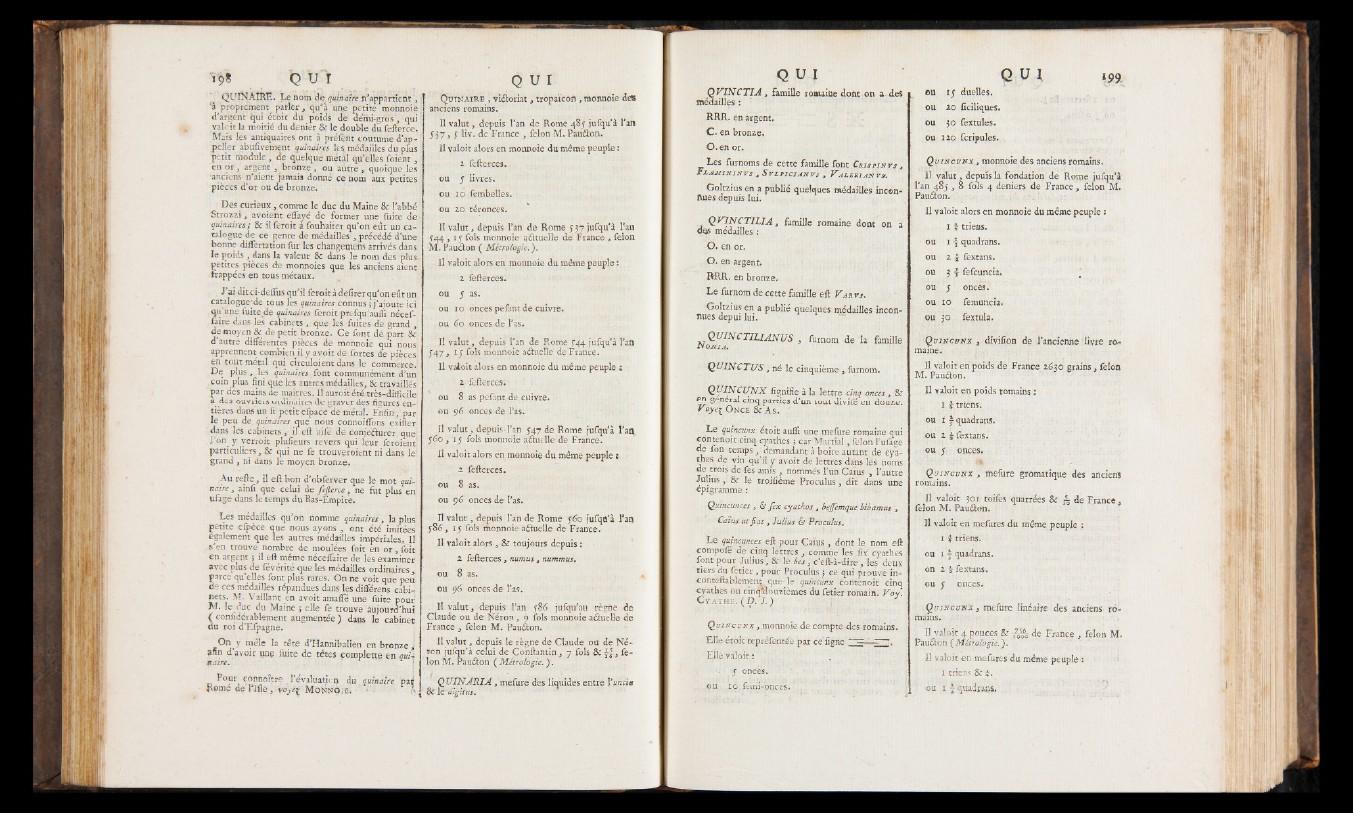 198 QUI
QUINAIRE. Le nom de quinaire n'appartient,
à proprement parler, qu'à une petite monnoie
d'argent qui étoit du poids de demi-gros, qui
valoit la moitié du denier & le double du sesterce.
Mais les antiquaires ont à présent coutume d'ap-
peller abusivement quinaires les médailles du plus
petit module, de quelque métal qu'elles soient,
en or, argent, bronze, ou autre, quoique les
anciens n'aient jamais donné ce nom aux petites
pièces d'or ou de bronze.
Des curieux, comme le duc du Maine & l'abbé
Strozzi, avoient essayé de former une suite de
quinaires; & il seroit à souhaiter qu'on eût un ca-
talogue de ce genre de médailles, précédé d'une
bonne dissertation sur les changemens arrivés dans
le poids, dans la valeur & dans le nom des plus
petites pièces de monnoies que les anciens aient
frappées en tous métaux.
J'ai dit ci-dessus qu'il seroit à desirer qu'on eût un
catalogue de tous les quinaires connus; j'ajoute ici
qu'une suite de quinaires seroit presqu'aussi néces-
saire dans les cabinets, que les suites de grand,
de moyen & de petit bronze. Ce sont de part &
d'autre différentes pièces de monnoie qui nous
apprennent combien il y avoit de sortes de pièces
en tout métal qui circuloient dans le commerce.
De plus, les quinaires sont communément d'un
coin plus fini que les autres médailles, & travaillés
par des mains de maîtres. Il auroit été très-difficile
à des ouvriers ordinaires de graver des figures en-
tières dans un si petit espace de métal. Enfin, par
le peu de quinaires que nous connoissons exister
dans les cabinets, il est aisé de conjecturer que
l'on y verroit plusieurs revers qui leur seroient
particuliers, & qui ne se trouveroient ni dans le
grand, ni dans le moyen bronze.
Au reste, il est bon d'observer que le mot qui-
naire, ainsi que celui de sesterce, ne fut plus en
usage dans le temps du Bas-Empire.
Les médailles qu'on nomme quinaires, la plus
petite espèce que nous ayons, ont été imitées
également que les autres médailles impériales. Il
s'en trouve nombre de moulées soit en or, soit
en argent; il est même nécessaire de les examiner
avec plus de sévérité que les médailles ordinaires,
parce qu'elles sont plus rares. On ne voit que peu
de ces médailles répandues dans les différens cabi-
nets. M. Vaillant en avoit amassé une suite pour
M. le duc du Maine; elle se trouve aujourd'hui
(considérablement augmentée) dans le cabinet
du roi d'Espagne.
On y mêle la tête d'Hannibalien en bronze,
afin d'avoir une suite de têtes complette en qui-
naire.
Pour connoître l'évaluation du quinaire par
Romé de l'Isle, voyez MONNOIE.
QUI
QUINAIRE, victoriat, tropaïcon, monnoie des
anciens romains.
Il valut, depuis l'an de Rome 485 jusqu'à l'an
537, 5 liv. de France, selon M. Paucton.
Il valoit alors en monnoie du même peuple:
2 sesterces.
ou 5 livres.
ou 10 sembelles.
ou 20 téronces.
Il valut, depuis l'an de Rome 537 jusqu'à l'an
544, 15 sols monnoie actuelle de France, selon
M. Paucton (Métrologie.).
Il valoit alors en monnoie du même peuple:
2 sesterces.
ou 5 as.
ou 10 onces pesant de cuivre.
ou 60 onces de l'as.
Il valut, depuis l'an de Rome 544 jusqu'à l'an
547, 15 sols monnoie actuelle de France.
Il valoit alors en monnoie du même peuple:
2 sesterces.
ou 8 as pesant de cuivre.
ou 96 onces de l'as.
Il valut, depuis l'an 547 de Rome jusqu'à l'an
560, 15 sols monnoie actuelle de France.
Il valoit alors en monnoie du même peuple:
2 sesterces.
ou 8 as.
ou 96 onces de l'as.
Il valut, depuis l'an de Rome 560 jusqu'à l'an
586, 15 sols monnoie actuelle de France.
Il valoit alors, & toujours depuis:
2 sesterces, numus, nummus.
ou 8 as.
ou 96 onces de l'as.
Il valut, depuis l'an 586 jusqu'au règne de
Claude ou de Néron, 9 sols monnoie actuelle de
France, selon M. Paucton.
Il valut, depuis le règne de Claude ou de Né-
ron jusqu'à celui de Constantin, 7 sols & se-
lon M. Paucton (Métrologie.).
QUINARIA, mesure des liquides entre l'uncia
& le digitus.
QUI
QVINCTIA, famille romaine dont on a des
médailles:
RRR. en argent.
C. en bronze.
O. en or.
Les surnoms de cette famille sont CRISPINVS,
FLAMININVS, SVLPICIANVS, VALERIANVS.
Goltzius en a publié quelques médailles incon-
nues depuis lui.
QVINCTILIA, famille romaine dont on a
des médailles:
O. en or.
O. en argent.
RRR. en bronze.
Le surnom de cette famille est VARVS.
Goltzius en a publié quelques médailles incon-
nues depui lui.
QUINCTILIANUS, surnom de la famille
NONIA.
QUINCTUS, né le cinquième, surnom.
QUINCUNX signifie à la lettre cinq onces, &
en général cinq parties d'un tout divisé en douze.
Voyez ONCE & AS.
Le quincunx étoit aussi une mesure romaine qui
contenoit cinq cyathes; car Martial, selon l'usage
de son temps, demandant à boire autant de cya-
thes de vin qu'il y avoit de lettres dans les noms
de trois de ses amis, nommés l'un Caius, l'autre
Julius, & le troisième Proculus, dit dans une
épigramme:
Quincunces, & sex cyathos, bessemque bibamus,
Caius ut fiat, Julius & Proculus.
Le quincunces est pour Caius, dont le nom est
composé de cinq lettres, comme les six cyathes
sont pour Julius, & le bes, c'est-à-dire, les deux
tiers du setier, pour Proculus; ce qui prouve in-
contestablement que le quincunx contenoit cinq
cyathes ou cinq douzièmes du setier romain. Voy.
CYATHE. (D. J.)
QUINCUNX, monnoie de compte des romains.
Elle étoit représentée par ce signe
Elle valoit:
5 onces.
ou 10 semi-onces.
QUI 199
ou 15 duelles.
ou 20 siciliques.
ou 30 sextules.
ou 120 scripules.
QUINCUNX, monnoie des anciens romains.
Il valut, depuis la fondation de Rome jusqu'à
l'an 485, 8 sols 4 deniers de France, selon M.
Paucton.
Il valoit alors en monnoie du même peuple:
1 triens.
ou 1 quadrans.
ou 2 sextans.
ou 3 sescuncia.
ou 5 onces.
ou 10 semuncia.
ou 30 sextula.
QUINCUNX, division de l'ancienne livre ro-
maine.
Il valoit en poids de France 2630 grains, selon
M. Paucton.
Il valoit en poids romains:
1 triens.
ou 1 quadrans.
ou 2 sextans.
ou 5 onces.
QUINCUNX, mesure gromatique des anciens
romains.
Il valoit 301 toises quarrées & de France,
selon M. Paucton.
Il valoit en mesures du même peuple:
1 triens.
ou 1 quadrans.
on 2 sextans.
ou 5 onces.
QUINCUNX, mesure linéaire des anciens ro-
mains.
Il valoit 4 pouces & de France, selon M.
Paucton (Métrologie.).
Il valoit en mesures du même peuple:
1 triens &
ou 1 quadrans.